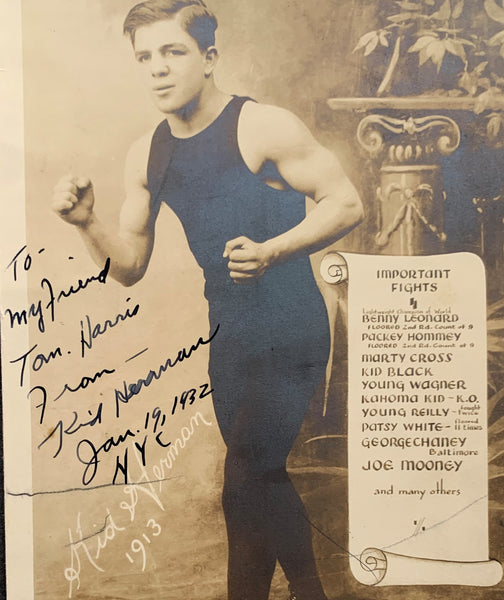 To-
My Friend
Tom. Harris
From -
Kid Herman
Jan. 19, 1932
NYC
Kid Herman
1913
IMPORTANT
FIGHTS
Lightweight Champion of World
BENNY LEONARD
FLOORED 2nd Rd. Count of 9
PACKEY HOMMEY
FLOORED 2nd Rd. Count of 9
MARTY CROSS
KID BLACK
YOUNG WAGNER
KAHOMA KID - K.O.
YOUNG REILLY - fought twice
PATSY WHITE - floored 11 times
GEORGECHANEY
Baltimore
JOE MOONEY
and many others